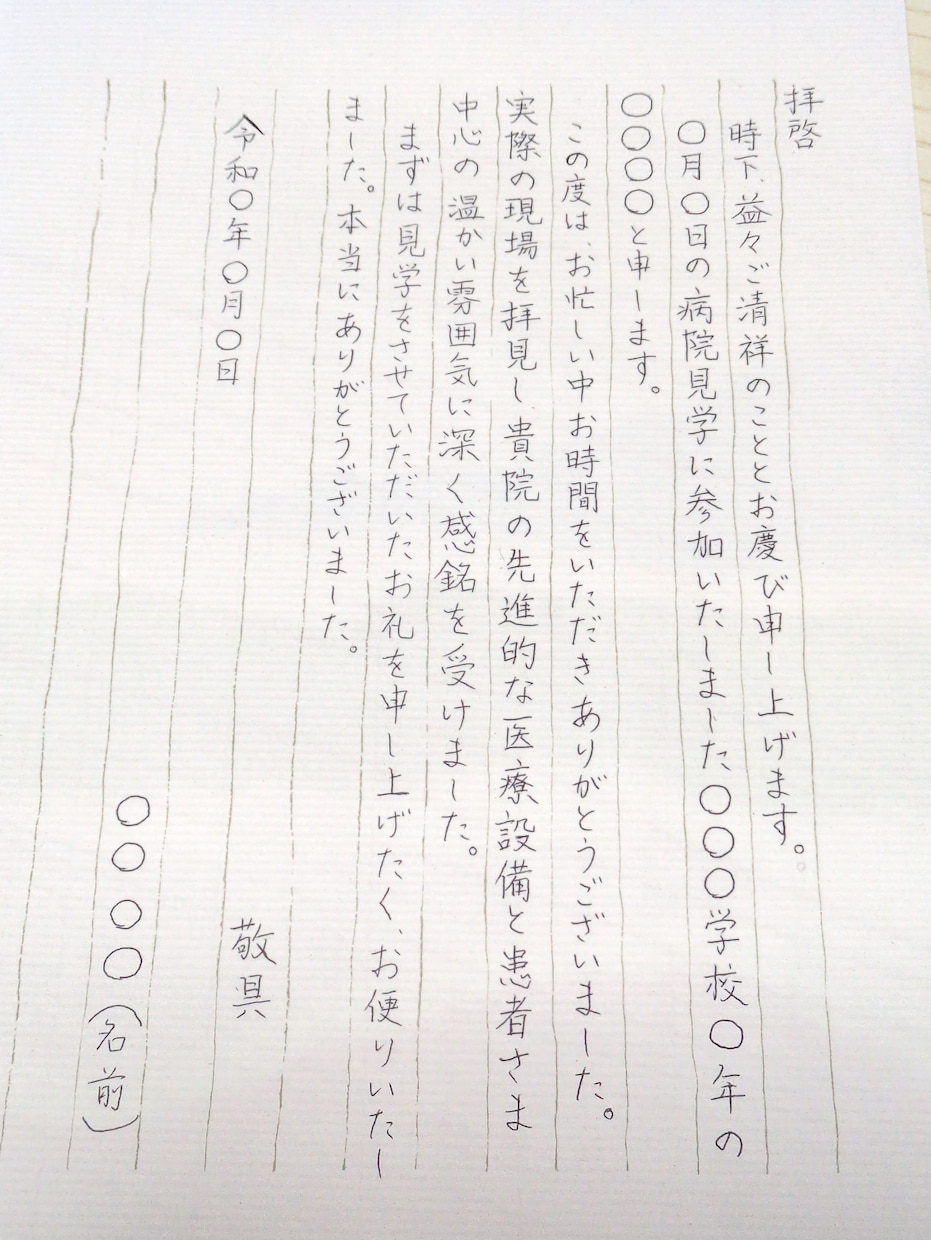 拝啓
時下、益々ご清祥のこととお慶び申し上げます。
〇月〇日の病院見学に参加いたしました〇〇〇学校〇年の
〇〇〇〇と申します。
この度は、お忙しい中お時間をいただきありがとうございました。
実際の現場を拝見し、貴院の先進的な医療設備と患者さま
中心の温かい雰囲気に深く感銘を受けました。
まずは見学をさせていただいたお礼を申し上げたく、お便りいたし
ました。本当にありがとうございました。
敬具
令和〇年〇月〇日
〇〇〇〇(名前)